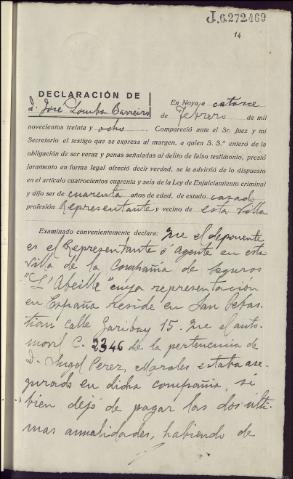 J.6272469
14
DECLARACIÓN DE
D. José Lomba Barreiro
En Noya, a catorce
de febrero de mil
novecientos treinta y ocho. Compareció ante el Sr. Juez y mi
Secretario el testigo que se expresa al margen, a quien S. S.ª enteró de la
obligación de ser veraz y penas señaladas al delito de falso testimonio, prestó
juramento en forma legal ofreció decir verdad, se le advirtió de lo dispuesto
en el artículo cuatrocientos cuarenta y seis de la Ley de Enjuiciamiento criminal
y dijo ser de cuarenta años de edad, de estado casado
profesión Representante y vecino de esta Villa
Examinado convenientemente declara: Que el deponente
es el Representante ó Agente en esta
Villa de la Compañia de seguros
"L'Abeille" cuya representación
en España reside en San Sebas
tian, calle Garibay 15. Que el auto-
movil C. 2346 de la pertenencia de
D. Angel Perez Morales estaba ase-
gurado en dicha compañia, si
bien dejó de pagar las dos últi-
mas anualidades, habiendo de